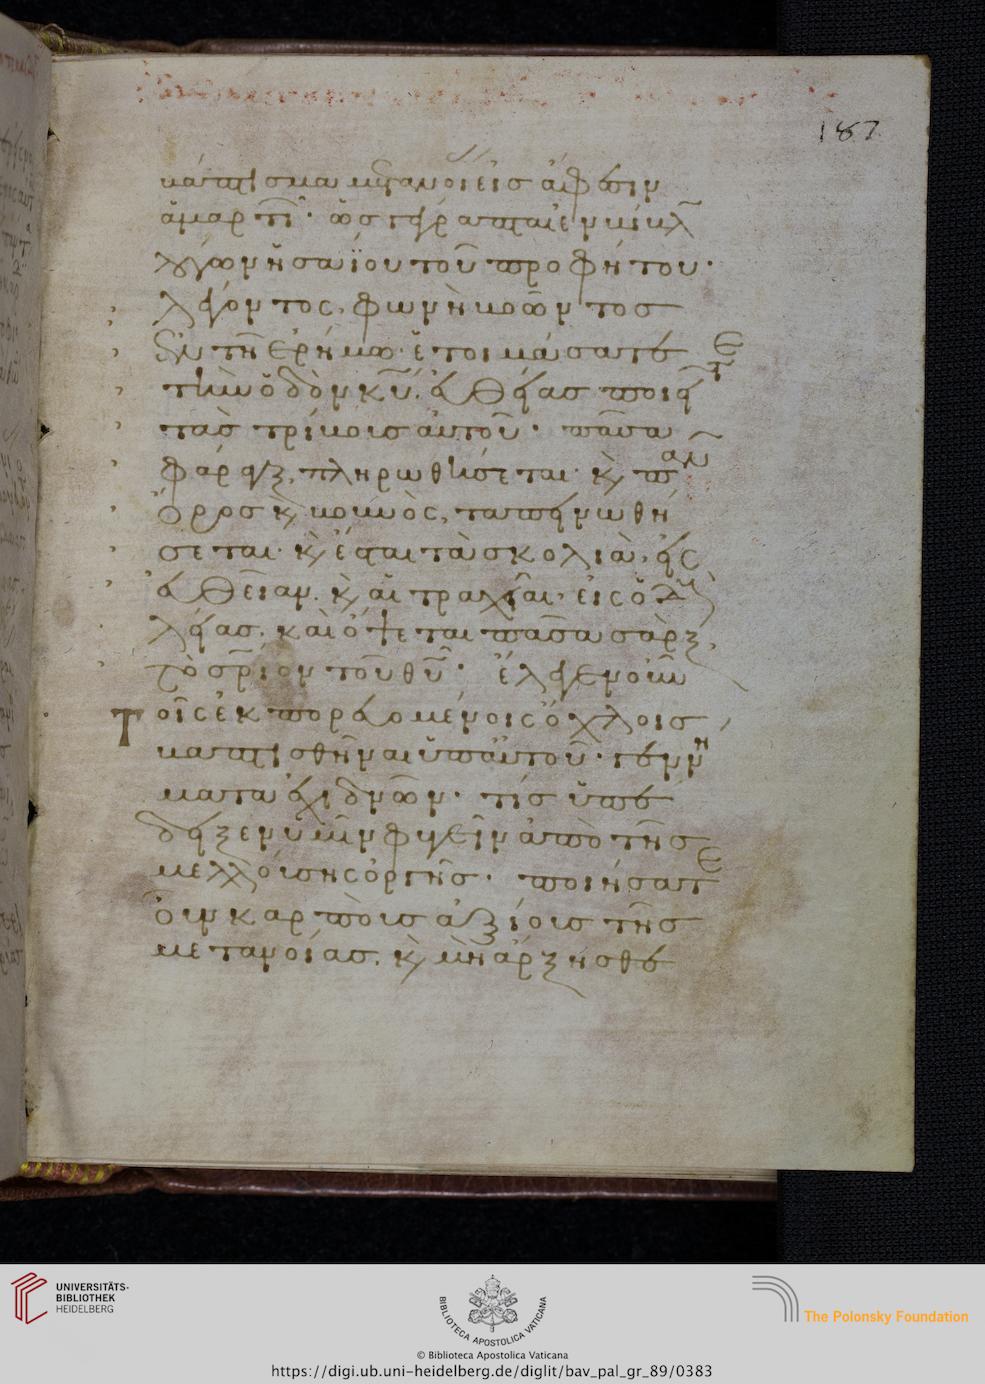 187
βάπτισμα μετανοίας εἰς ἄφεσιν
ἁμαρτι· ὡς γέγραπται ἐν βίβλ
λόγων ἡσαΐου τοῦ προφήτου·
λέγοντος, φωνὴ βοῶντος
ἐν τῇ ἐρήμω· ἑτοιμάσατε
τὴν ὁδὸν κῦ. εὐθείας ποιεῖτε
τὰς τρίβους αὐτοῦ· πᾶσα
φάραγξ, πληρωθήσεται· κ παν
ὄρος κ βουνὸς, ταπεινωθή
σεται· κ ἔσται τὰ σκολιὰ, εἰς
εὐθεῖαν. κ αἱ τραχεῖαι, εἰς ὁδοὺς
λείας. καὶ ὄψεται πᾶσα σὰρξ,
τὸ σριον τοῦ θῦ· ἔλεγεν οὖν
Τοῖς ἐκπορευομένοις ὄχλοις
βαπτισθῆναι ὑπ αὐτοῦ· γεννή
ματα ἐχιδνῶν· τίς ὑπέ
δειξεν ὑμῖν φυγεῖν ἀπὸ τῆς
μελλούσης ὀργῆς· ποιήσατε
οὖν καρποὺς ἀξίους τῆς
μετανοίας. κ μὴ ἄρξησθε
UNIVERSITÄTS-
BIBLIOTHEK
HEIDELBERG
BIBLIOTECA APOSTOLICA VATICANA
© Biblioteca Apostolica Vaticana
The Polonsky Foundation
https://digi.ub.uni-heidelberg.de/diglit/bav_pal_gr_89/0383